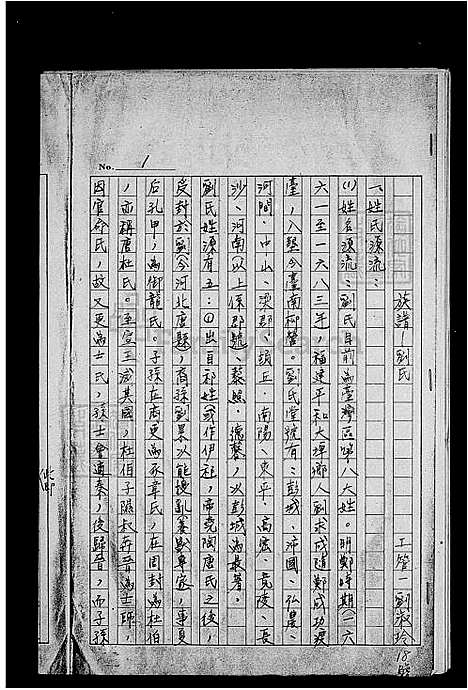 No. 1
族譜—劉氏
工管一 劉淑玲 18號
一、姓氏源流：
(1)姓名源流：劉氏目前為臺灣區第八大姓。明鄭時期(一六
六一至一六八三年，福建平和大坪鄉人劉求成隨鄭成功渡
臺，入墾今臺南柳營。劉氏堂號有：彭城、沛國、弘農、
河間、中山、梁郡、頓丘、南陽、東平、高密、竟陵、長
沙、河南(以上係郡號)、藜照、德藜，以彭城為最著。
劉氏姓源有五：①出自祁姓(或作伊祖，帝堯陶唐氏之後，
受封於劉(今河北唐縣)，裔孫劉累以能擾亂豢獸專家，事夏
后孔甲，為御龍氏。子孫在商更為豕韋氏，在周封為杜伯
，亦稱唐杜氏。至宣王滅其國，杜伯子隰叔存晉為士師，
因官命氏，故又更為士氏，孫士會適秦，後歸晉，而子孫